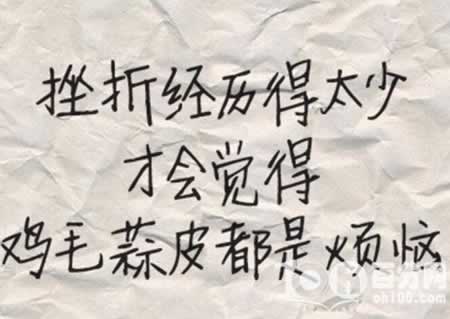 挫折经历得太少
才会觉得
鸡毛蒜皮都是烦恼
百分网
oh100.com